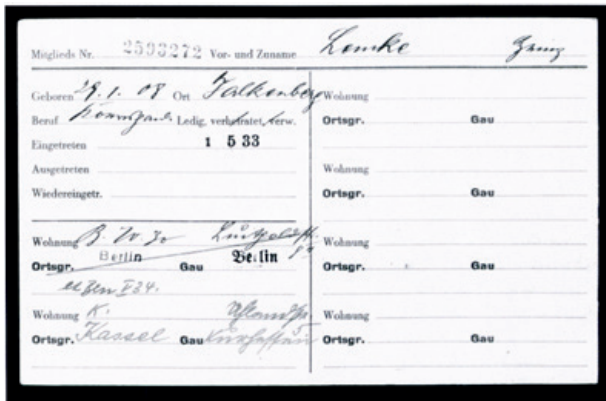 Mitglieds Nr. 2593272 Vor- und Zuname Lemke
Geboren 29. 1. 08 Ort Falkenberg
Beruf Ledig, verheiratet, verw.
Eingetreten 1 5 33
Ausgetreten
Wiedereingetr.
Wohnung B. W. 30
Ortsgr. Berlin Gau Berlin
Wohnung K.
Ortsgr. Kassel Gau Kurhessen
Wohnung
Ortsgr. Gau
Wohnung
Ortsgr. Gau
Wohnung
Ortsgr. Gau
Wohnung
Ortsgr. Gau